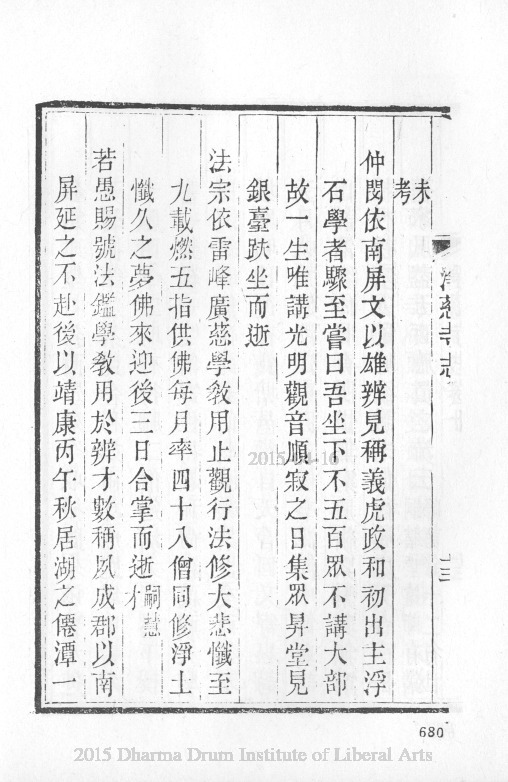 未
考
仲閔依南屏文以雄辨見稱義虎政和初出主浮
石學者驟至嘗曰吾坐下不五百眾不講大部
故一生唯講光明觀音順寂之日集眾昇堂見
銀臺趺坐而逝
法宗依雷峰廣慈學教用止觀行法修大悲懺至
九載燃五指供佛每月率四十八僧同修淨土
懺久之夢佛來迎後三日合掌而逝嗣慧才
若愚賜號法鑑學教用於辨才數稱夙成郡以南
屏延之不赴後以靖康丙午秋居湖之僊潭一
淨慈寺志
2015-04-16
680
2015 Dharma Drum Institute of Liberal Arts